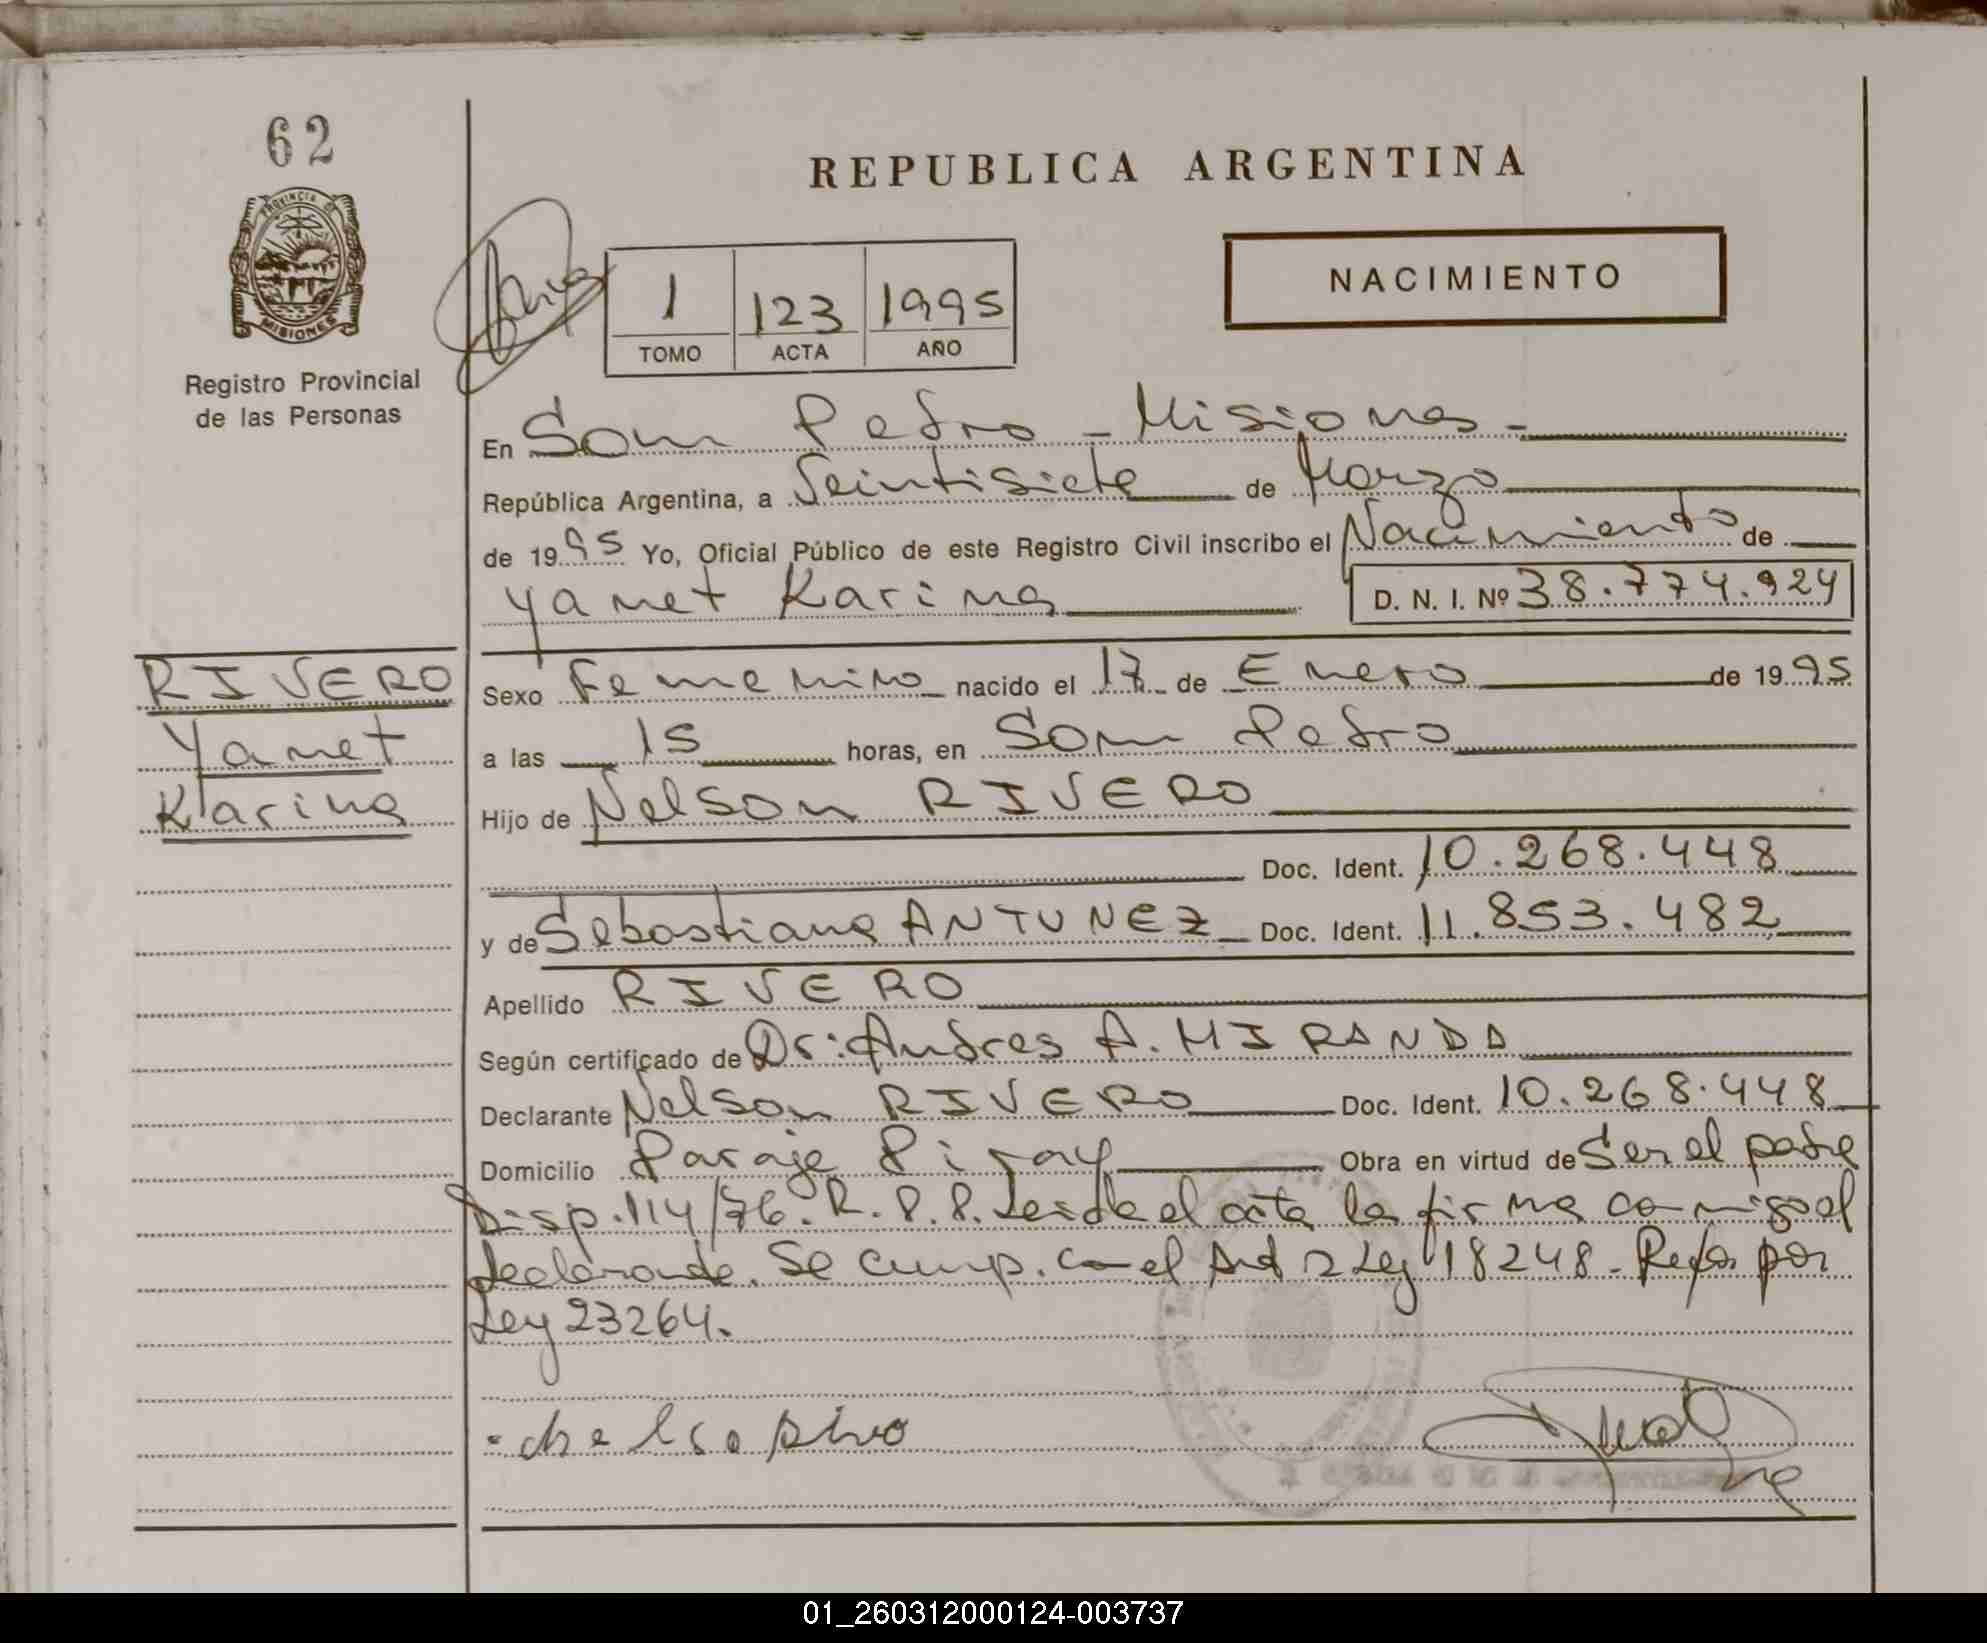 62
REPUBLICA ARGENTINA
PROVINCIA DE
MISIONES
Registro Provincial
de las Personas
1 123 1995
TOMO ACTA AÑO
NACIMIENTO
En San Pedro - Misiones -
República Argentina, a Veintisiete de Marzo
de 1995 Yo, Oficial Público de este Registro Civil inscribo el Nacimiento de
Yanet Karina D. N. I. Nº 38.774.924
RIVERO
Yanet
Karina
Sexo Femenino nacido el 17 de Enero de 1995
a las 15 horas, en San Pedro
Hijo de Nelson RIVERO
Doc. Ident. 10.268.448
y de Sebastiana ANTUNEZ Doc. Ident. 11.853.482
Apellido RIVERO
Según certificado de Dr: Andres A. MIRANDA
Declarante Nelson RIVERO Doc. Ident. 10.268.448
Domicilio Paraje Piray Obra en virtud de Ser el padre
Disp. 114/76. R. P. P. Leida el acta la firma conmigo el
declarante. Se cump. con el Art 2 Ley 18248. Refor por
Ley 23264.
01_260312000124-003737